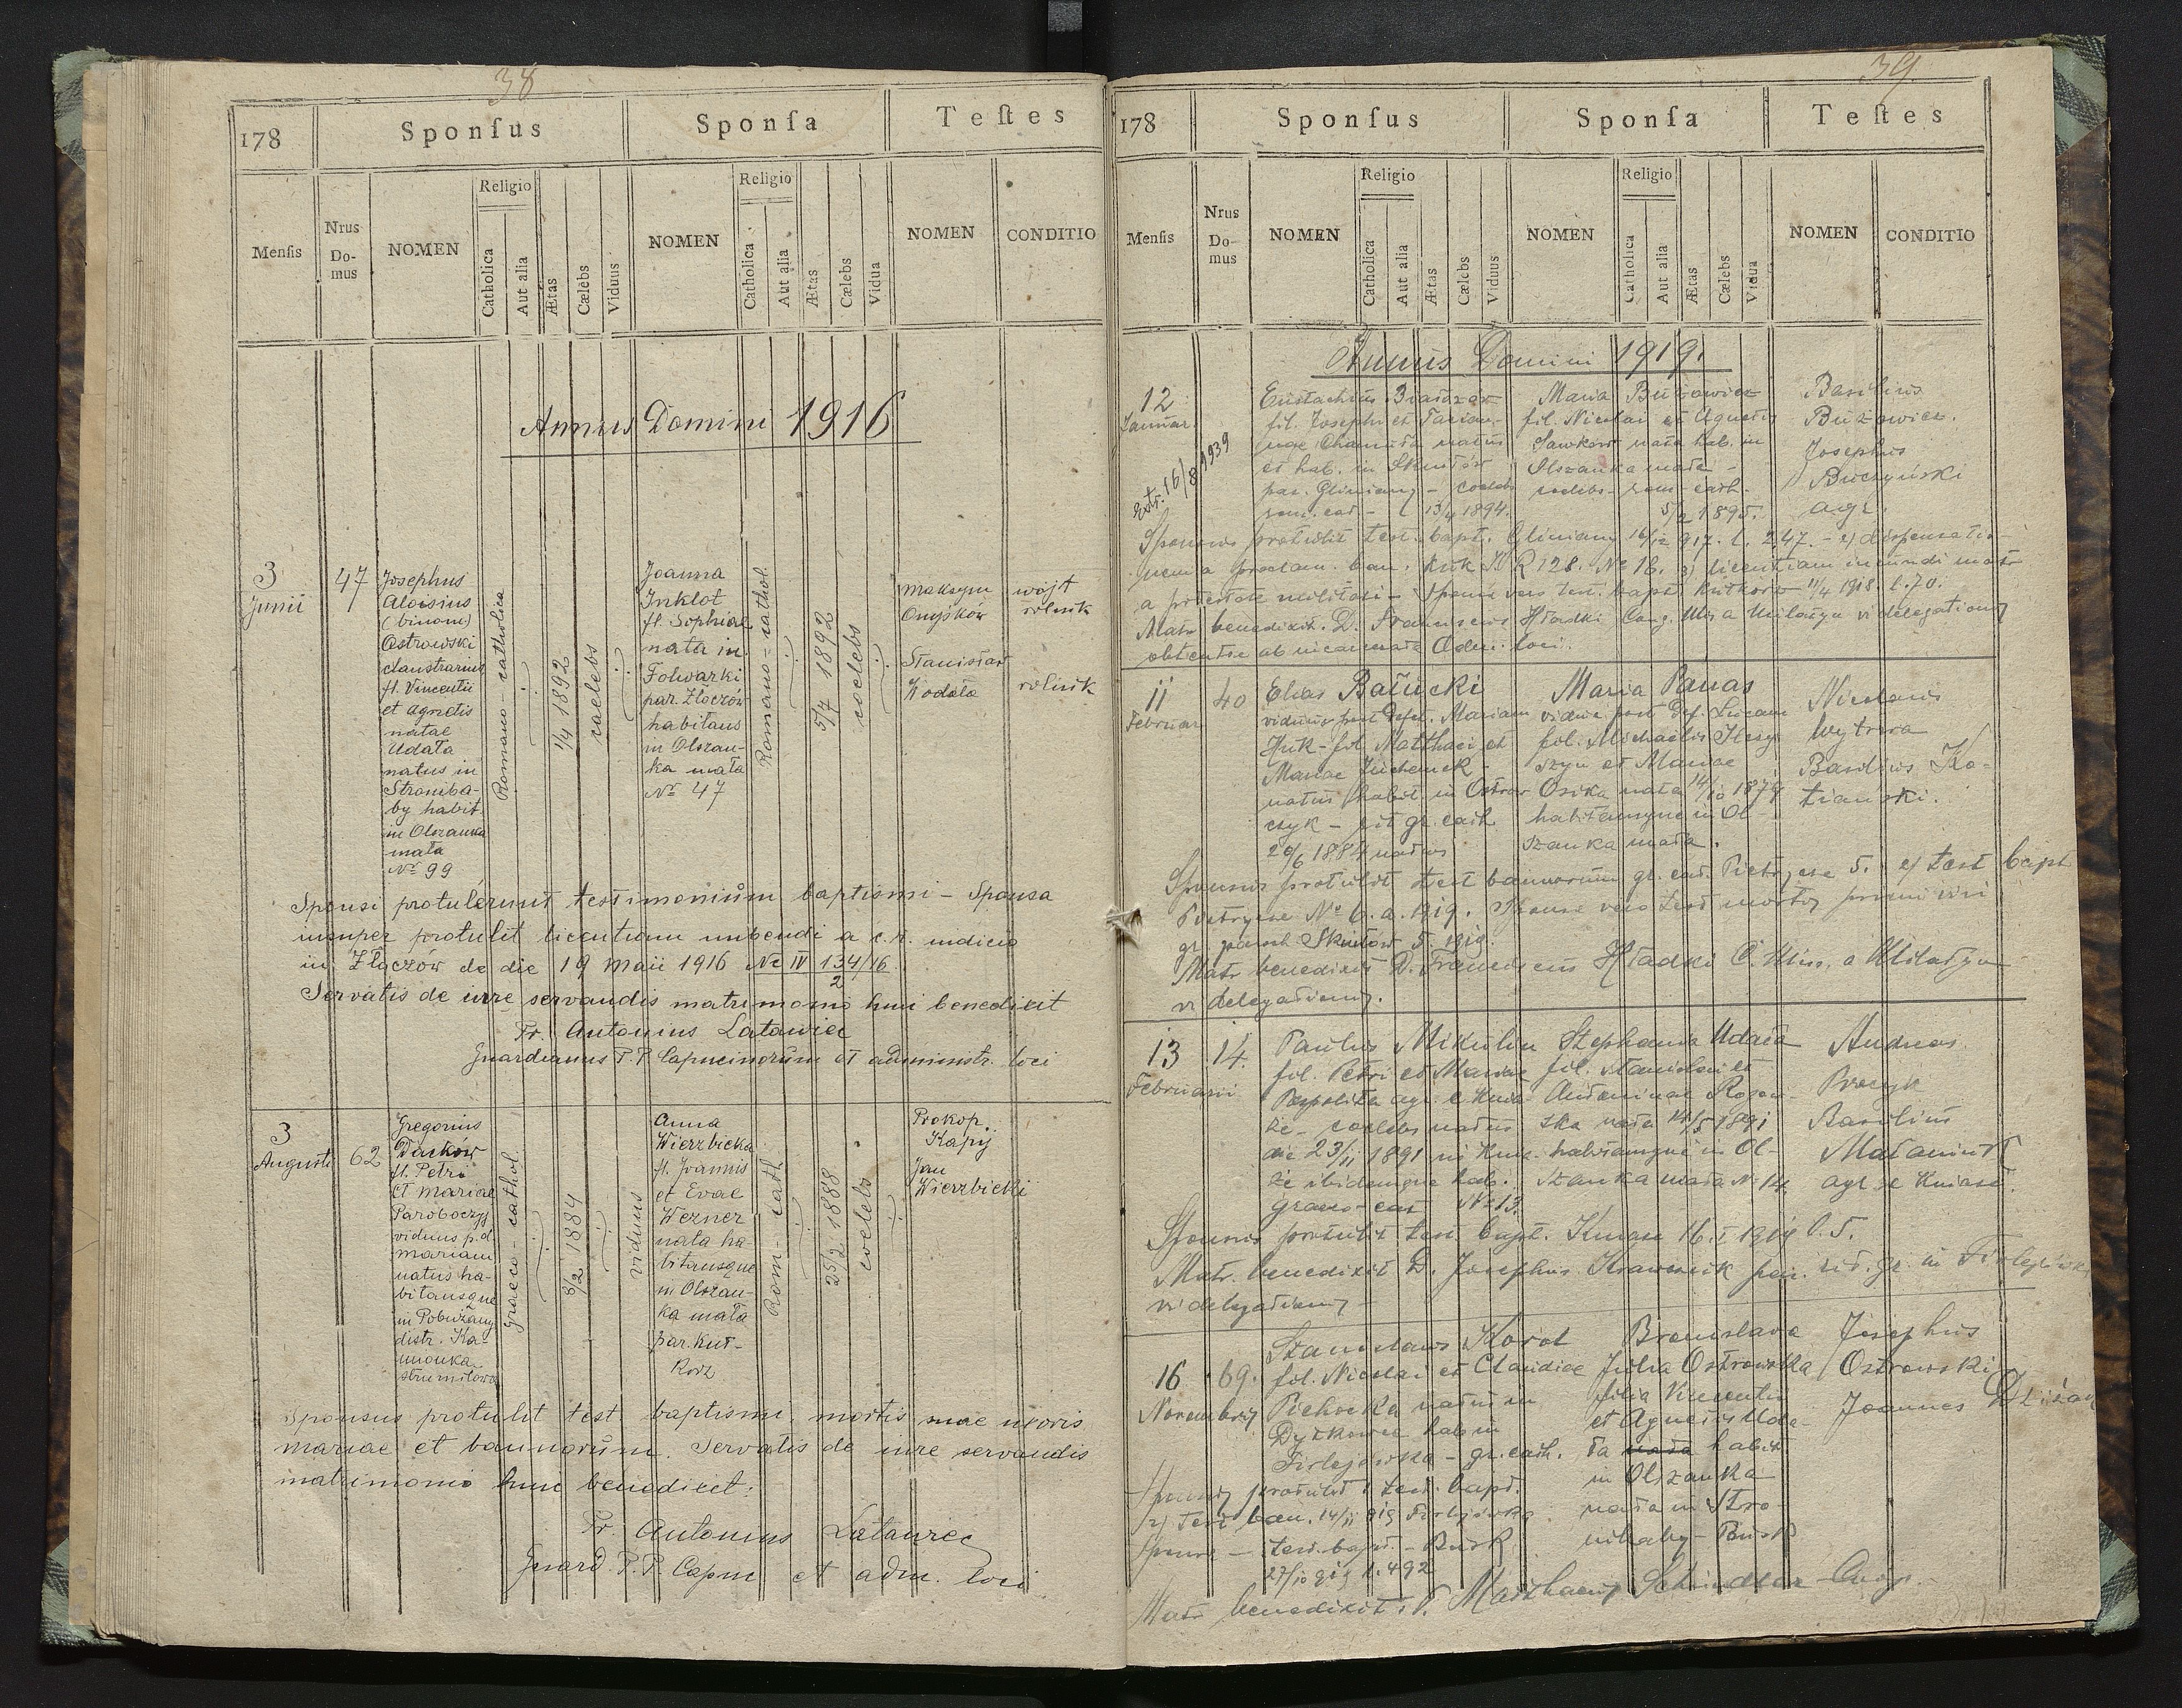 38
178
Sponſus
Sponſa
Teſtes
Menſis
Nrus Domus
NOMEN
Religio
Catholica
Aut alia
Ætas
Cælebs
Viduus
NOMEN
Religio
Catholica
Aut alia
Ætas
Cælebs
Vidua
NOMEN
CONDITIO
Annus Domini 1916
3
Junii
47
Josephus
Aloisius
(binom)
Ostrowski
claustrarius
fl. Vincentii
et Agnetis
natae
Udała
natus in
Stromba-
by habit.
in Olszanka
mała
No 99
Romano-catholica
1/4 1892
caelebs
Joanna
Inklot
fl. Sophiae
nata in
Folwarki
par. Złoczów
habitans
in Olszan-
ka mała
No 47
Romano-cathol.
5/7 1892
coelebs
Maksym
Onyśków
wójt
rolnik
Stanisław
Wodała
rolnik
Sponsi protulerunt testimonium baptismi - Sponsa
insuper protulit licentiam nubendi a c. k. iudicio
in Złoczów de die 19 Maii 1916 No IV 134/16
2
Servatis de iure servandis matrimonio huic benedixit
Fr. Antonius Latawiec
Guardianus P.P. Capucinorum et administr. loci
3
Augusti
62
Gregorius
Daćków
fl. Petri
et Mariae
Paroboczyj
viduus p. d.
Mariam
natus ha-
bitansque
in Pobużany
distr. Ka-
mionka
strumiłowa
Graeco-cathol.
8/2 1884
viduus
Anna
Wierzbicka
fl. Joannis
et Evae
Werner
nata ha-
bitansque
in Olszan-
ka mała
par. Kut-
korz
Rom-cath.
25/2 1888
coelebs
Prokop
Kapij
Jan
Wierzbicki
Sponsus protulit test. baptismi, mortis suae uxoris
Mariae et bannorum. Servatis de iure servandis
matrimonio huic benedixit:
Fr. Antonius Latawiec
Guard. P.P. Capuc et adm. loci
39
178
Sponſus
Sponſa
Teſtes
Menſis
Nrus Domus
NOMEN
Religio
Catholica
Aut alia
Ætas
Cælebs
Viduus
NOMEN
Religio
Catholica
Aut alia
Ætas
Cælebs
Vidua
NOMEN
CONDITIO
Annus Domini 1919.
12
Januar.
Extr. 16/8 1939
Eustachius
fil. Josephi et
natus
et hab. in Skniłów
par. Gliniany - coelebs
rom. cat - 13/4 1894.
Maria Bużowicz
fil. Nicolai et Agnetis
nata hab. in
Olszanka mała -
coelebs - rom - cath.
5/2 1895.
Basilius
Bużowicz.
Josephus
Buczyński
agr.
Sponsus protulit test. bapt. Gliniany 16/12 917. l. 247. - 2) dispensatio-
nem a proclam. ban. No 18. 3) licentiam ineundi matr
a potestate militari - Sponsa vero test. bapt Kutkorz 11/4 1918. l. 70.
Matr benedixit. D. Franciscus Hładki Coog. Miss a Milatyn vi delegationis
obtentae ab Adm. loci.
11
Februar
40
Elias Bałucki
viduus post def. Mariam
Huk - fil Matthaei et
Mariae
natus habit in Ostrow
czyk - rit gr. cath
20/6 1884 natus
Maria Panas
vidua post def. Lucam
fil. Michaelis
szyn et Mariae
Osika nata 14/10 1879
habitansque in Ol-
szanka mała.
Nicolaus
Wytrwa
Basilius Ko-
tiański.
Sponsus protulit test bannorum gr. cat. Pietrycze 5. 2) test bapt
Pietrycze No 6. a. 1919. Sponsa vero test mortis primi viri
gr. paroch Skniłów 5. 1919.
Matr benedixit D. Franciscus Hładki C. Miss. a Milatyn
vi delegationis.
13
Februarii
14.
Paulus Mikulin
fil. Petri et Mariae
agr. e Knia-
że - coelebs natus
die 23/11 1891 in Knia-
że ibidemque hab.
graeco-cat No 13.
Stephania Udała
fil. Stanislai et
Antoninae Rogow-
ska nata 14/5 1891
habitansque in Ol-
szanka mała No 14.
Andreas
Procyk
Basilius
agr. e Kniaże.
Sponsus protulit test bapt. Kniaże 16. I 1919 l. 5.
Matr. benedixit D. Josephus Krawczuk par. rit. gr. in Firlejówka
vi delegationis -
16
Novembris
69.
Stanislaus Korol
fil. Nicolai et Claudiae
Piehocka natus in
Dytkowce hab in
Firlejówka - gr. cath.
Bronislava
Julia Ostrowska
filia Vincentii
et Agnetis Uda-
ła habit
in Olszanka
nata in Stro-
nibaby - Busk
Josephus
Ostrowski
Joannes
Sponsus protulit 1 test. bapt.
2) Test ban. 14/11 919 Firlejówka
Sponsa - test. bapt. - Busk
27/10 919 l. 492
Matr benedixit P. Matthaeus Schindler Coop.